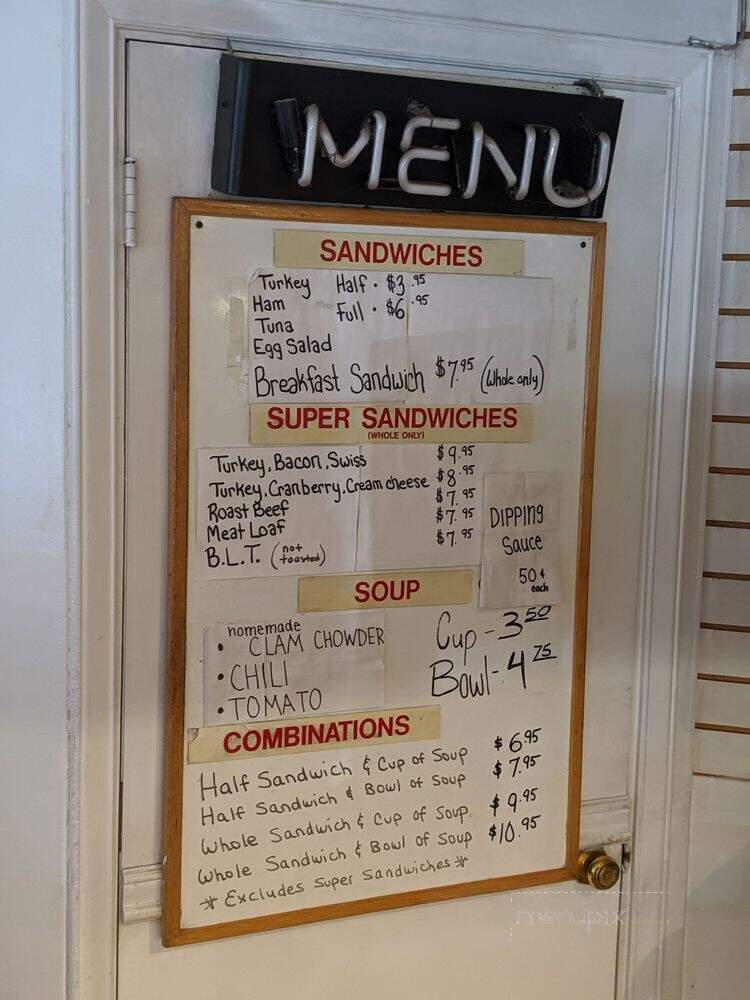 MENU
SANDWICHES
Turkey Half · $3.95
Ham Full · $6.95
Tuna
Egg Salad
Breakfast Sandwich $7.95 (Whole only)
SUPER SANDWICHES
(WHOLE ONLY)
Turkey, Bacon, Swiss $9.95
Turkey, Cranberry, Cream cheese $8.95
Roast Beef $7.95
Meat Loaf $7.95
B.L.T. (not toasted) $7.95
DIPPING
Sauce
50¢
each
SOUP
homemade
• CLAM CHOWDER Cup - 3.50
• CHILI Bowl - 4.75
• TOMATO
COMBINATIONS
Half Sandwich & Cup of Soup $6.95
Half Sandwich & Bowl of Soup $7.95
Whole Sandwich & Cup of Soup. $9.95
Whole Sandwich & Bowl of Soup $10.95
* Excludes Super Sandwiches *
menupix